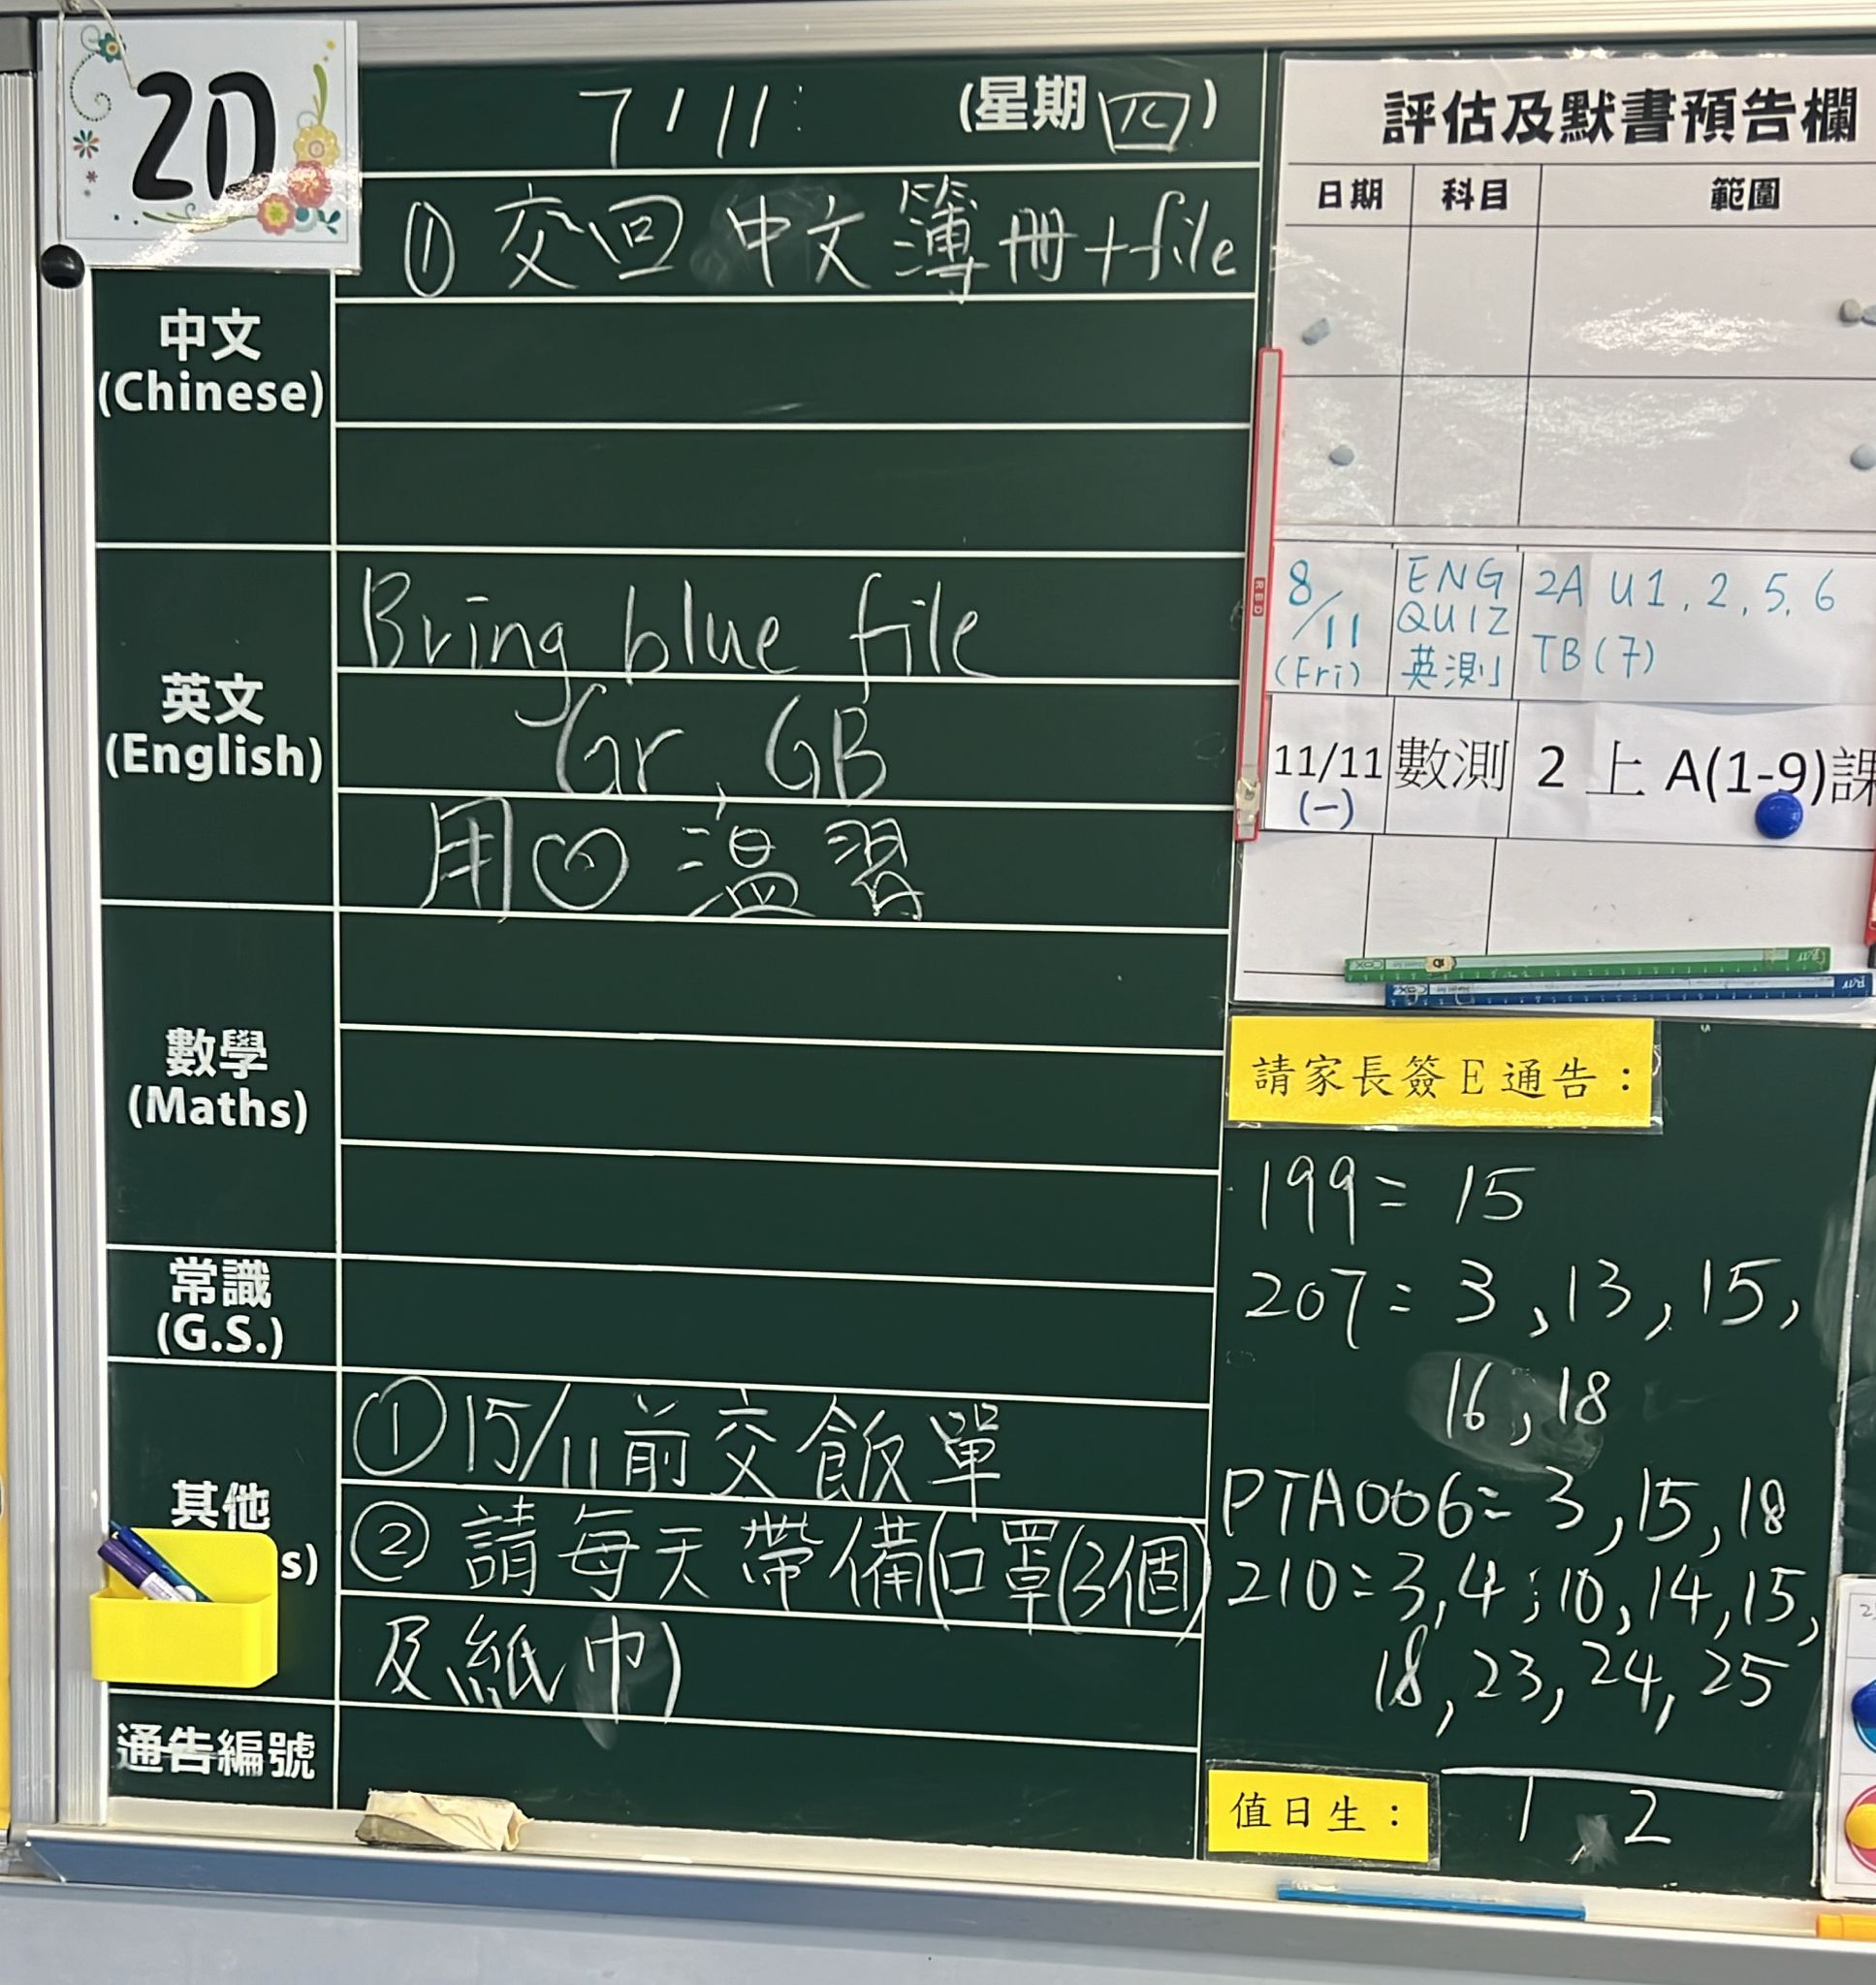 2D
7/11 (星期四)
① 交回中文簿冊+file
中文
(Chinese)
英文
(English)
Bring blue file
Gr, GB
用 溫習
數學
(Maths)
常識
(G.S.)
其他
s)
① 15/11前交飯單
② 請每天帶備(口罩(3個)
及紙巾)
通告編號
評估及默書預告欄
日期 科目 範圍
8/11 (Fri) ENG QUIZ 英測 2A U1, 2, 5, 6 TB(7)
11/11 (一) 數測 2 上 A(1-9)課
請家長簽E通告：
199= 15
207= 3, 13, 15,
16, 18
PTA006= 3, 15, 18
210= 3, 4, 10, 14, 15,
18, 23, 24, 25
值日生： 1, 2